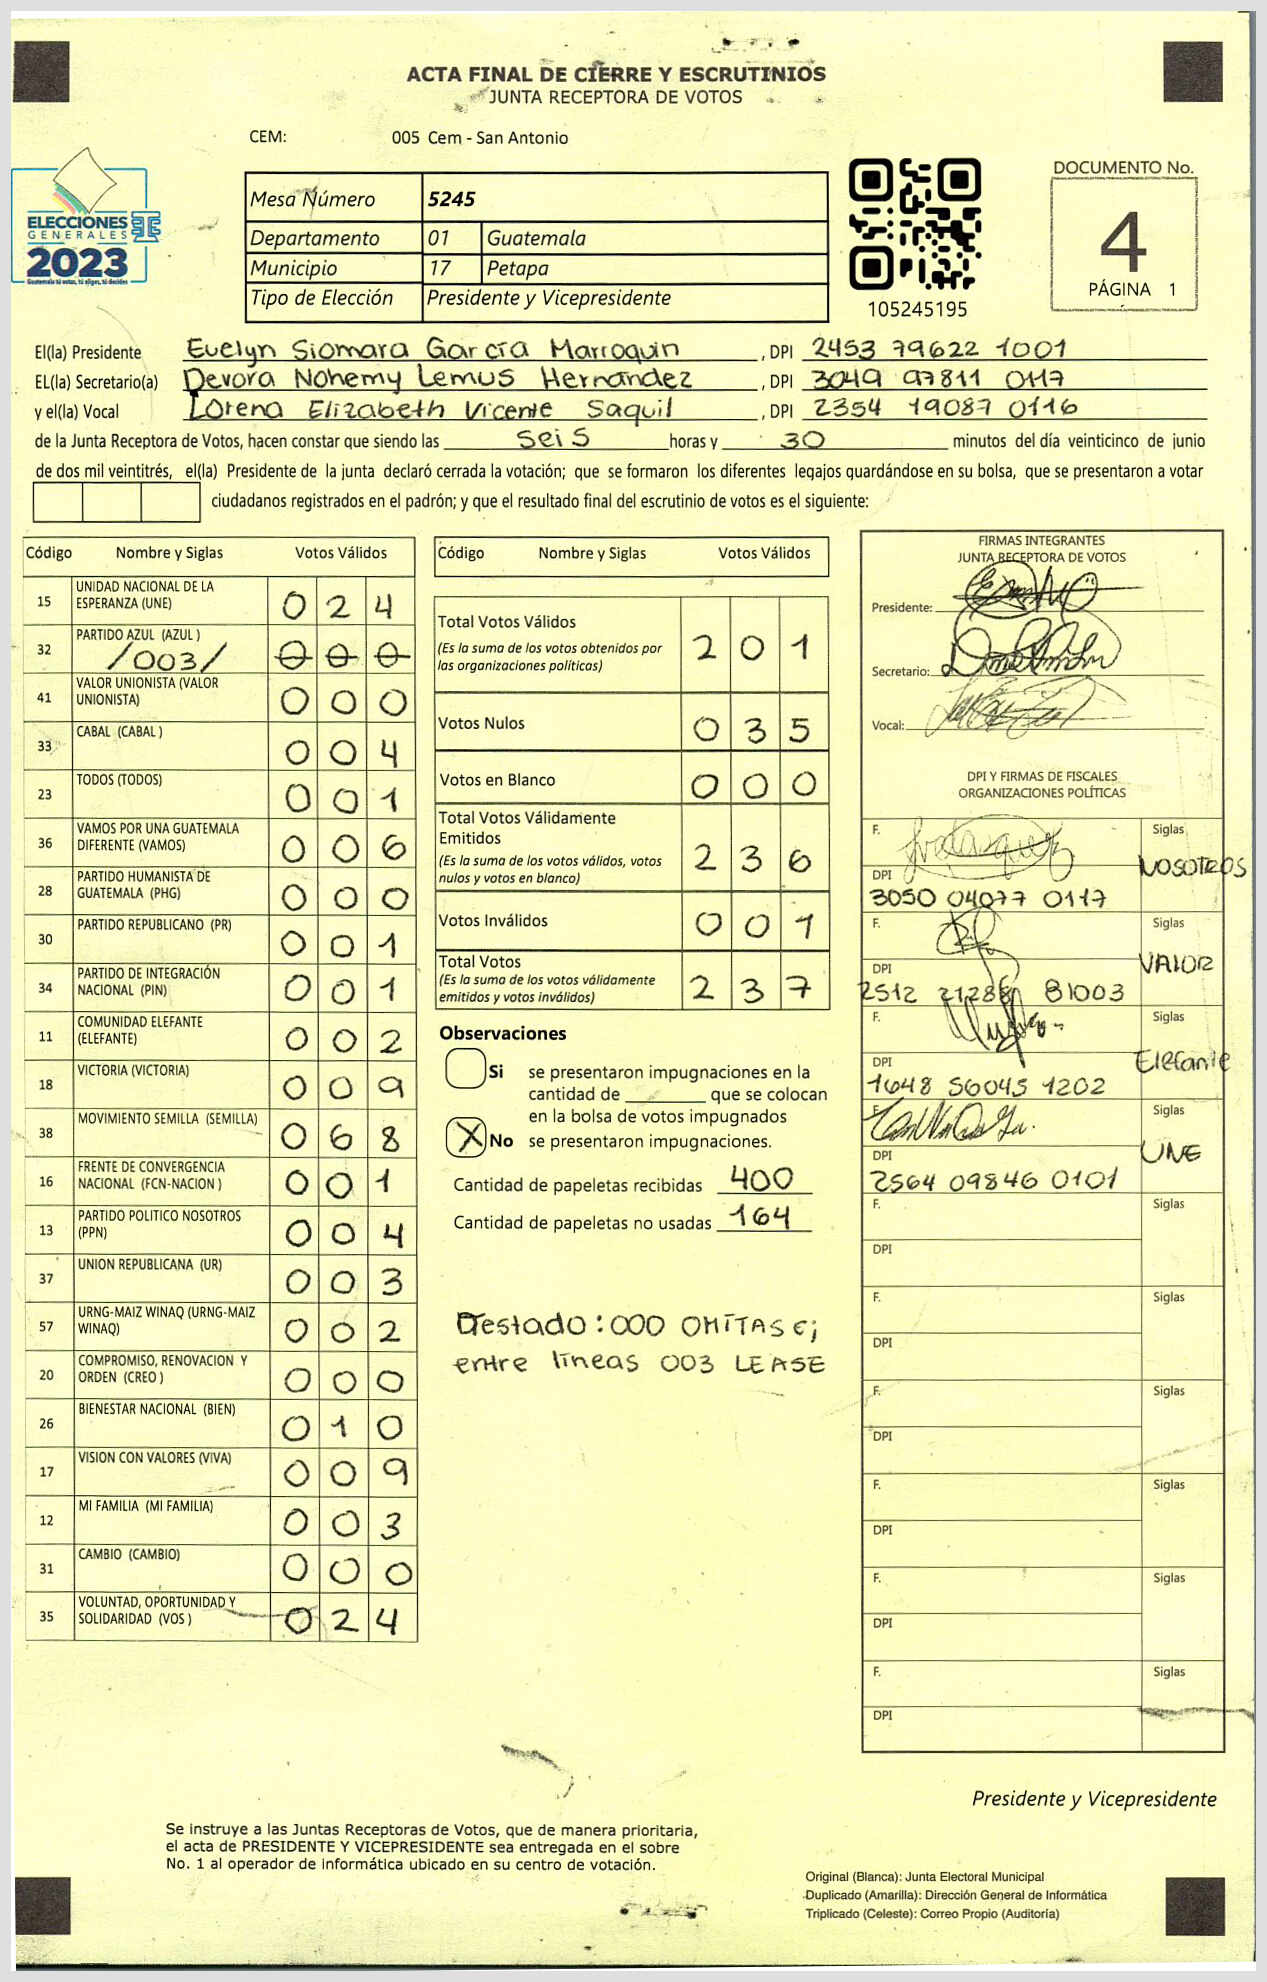 ACTA FINAL DE CIERRE Y ESCRUTINIOS
JUNTA RECEPTORA DE VOTOS
CEM: 005 Cem - San Antonio
ELECCIONES
GENERALES
2023
Guatemala tú votas, tú eliges, tú decides
Mesa Número 5245
Departamento 01 Guatemala
Municipio 17 Petapa
Tipo de Elección Presidente y Vicepresidente
105245195
DOCUMENTO No.
4
PÁGINA 1
El(la) Presidente Evelyn Siomara García Marroquin , DPI 2453 79622 1001
EL(la) Secretario(a) Devora Nohemy Lemus Hernández , DPI 3049 97811 0117
y el(la) Vocal Lorena Elizabeth Vicente Saquil , DPI 2354 19087 0116
de la Junta Receptora de Votos, hacen constar que siendo las seis horas y 30 minutos del día veinticinco de junio
de dos mil veintitrés, el(la) Presidente de la junta declaró cerrada la votación; que se formaron los diferentes legajos guardándose en su bolsa, que se presentaron a votar
ciudadanos registrados en el padrón; y que el resultado final del escrutinio de votos es el siguiente:
Código Nombre y Siglas Votos Válidos
15 UNIDAD NACIONAL DE LA ESPERANZA (UNE) 0 2 4
32 PARTIDO AZUL (AZUL ) /003/ 0 0 0
41 VALOR UNIONISTA (VALOR UNIONISTA) 0 0 0
33 CABAL (CABAL ) 0 0 4
23 TODOS (TODOS) 0 0 1
36 VAMOS POR UNA GUATEMALA DIFERENTE (VAMOS) 0 0 6
28 PARTIDO HUMANISTA DE GUATEMALA (PHG) 0 0 0
30 PARTIDO REPUBLICANO (PR) 0 0 1
34 PARTIDO DE INTEGRACIÓN NACIONAL (PIN) 0 0 1
11 COMUNIDAD ELEFANTE (ELEFANTE) 0 0 2
18 VICTORIA (VICTORIA) 0 0 9
38 MOVIMIENTO SEMILLA (SEMILLA) 0 6 8
16 FRENTE DE CONVERGENCIA NACIONAL (FCN-NACION ) 0 0 1
13 PARTIDO POLITICO NOSOTROS (PPN) 0 0 4
37 UNION REPUBLICANA (UR) 0 0 3
57 URNG-MAIZ WINAQ (URNG-MAIZ WINAQ) 0 0 2
20 COMPROMISO, RENOVACION Y ORDEN (CREO ) 0 0 0
26 BIENESTAR NACIONAL (BIEN) 0 1 0
17 VISION CON VALORES (VIVA) 0 0 9
12 MI FAMILIA (MI FAMILIA) 0 0 3
31 CAMBIO (CAMBIO) 0 0 0
35 VOLUNTAD, OPORTUNIDAD Y SOLIDARIDAD (VOS ) 0 2 4
Código Nombre y Siglas Votos Válidos
Total Votos Válidos 2 0 1
(Es la suma de los votos obtenidos por
las organizaciones políticas)
Votos Nulos 0 3 5
Votos en Blanco 0 0 0
Total Votos Válidamente
Emitidos 2 3 6
(Es la suma de los votos válidos, votos
nulos y votos en blanco)
Votos Inválidos 0 0 1
Total Votos 2 3 7
(Es la suma de los votos válidamente
emitidos y votos inválidos)
Observaciones
Si se presentaron impugnaciones en la
cantidad de ________ que se colocan
en la bolsa de votos impugnados
X No se presentaron impugnaciones.
Cantidad de papeletas recibidas 400
Cantidad de papeletas no usadas 164
Testado: 000 OMITASE;
entre líneas 003 LEASE
FIRMAS INTEGRANTES
JUNTA RECEPTORA DE VOTOS
Presidente:
Secretario:
Vocal:
DPI Y FIRMAS DE FISCALES
ORGANIZACIONES POLÍTICAS
F. Siglas
NOSOTROS
DPI
3050 04077 0117
F. Siglas
VALOR
DPI
2512 21288 81003
F. Siglas
Elefante
DPI
1648 56045 1202
F. Siglas
UNE
DPI
2564 09846 0101
F. Siglas
DPI
F. Siglas
DPI
F. Siglas
DPI
F. Siglas
DPI
F. Siglas
DPI
F. Siglas
DPI
Presidente y Vicepresidente
Se instruye a las Juntas Receptoras de Votos, que de manera prioritaria,
el acta de PRESIDENTE Y VICEPRESIDENTE sea entregada en el sobre
No. 1 al operador de informática ubicado en su centro de votación.
Original (Blanca): Junta Electoral Municipal
Duplicado (Amarilla): Dirección General de Informática
Triplicado (Celeste): Correo Propio (Auditoría)